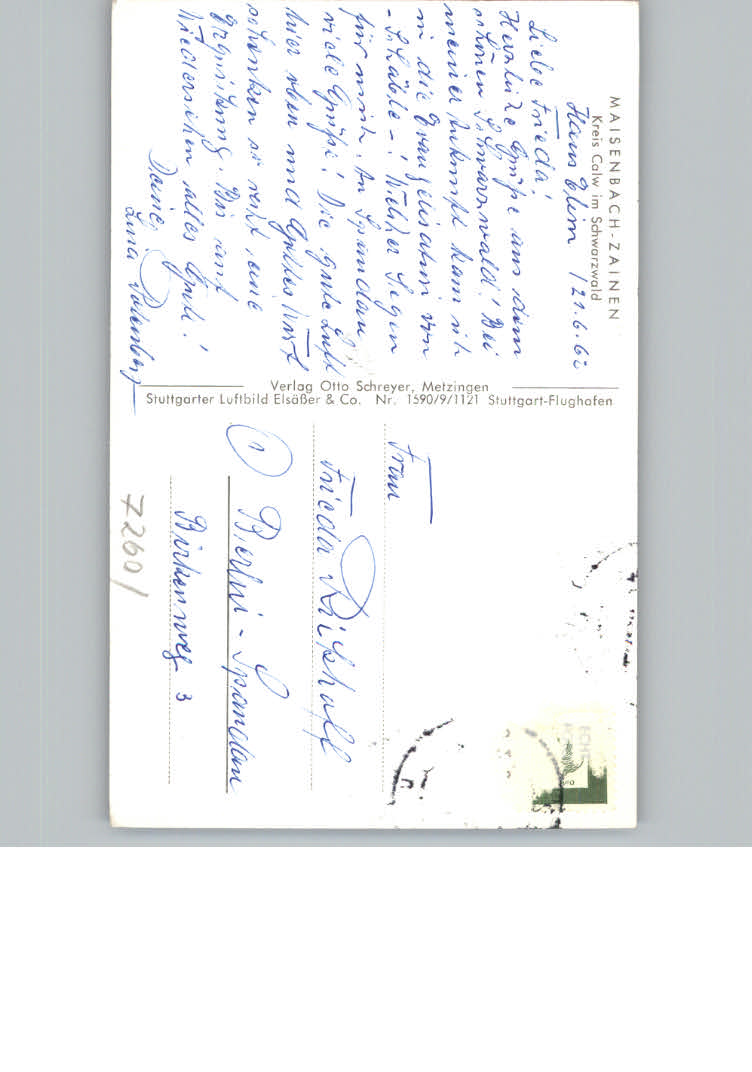 MAISENBACH-ZAINEN
Kreis Calw im Schwarzwald
Haus Elim / 21.6.62
Liebe Frieda!
Herzliche Grüße aus dem
schönen Schwarzwald! Bei
meiner Ankunft kam ich
in die Evangelisation von
Welcher Segen
für mich. An Spandau
viele Grüße! Die gute Luft
hier oben und Gottes Wort
schenken so recht eine
Erquickung. Bis zum
Wiedersehen alles Gute!
Deine
Verlag Otto Schreyer, Metzingen
Stuttgarter Luftbild Elsäßer & Co. Nr. 1590/9/1121 Stuttgart-Flughafen
Frau
Frieda
(1) Berlin - Spandau
Birkenweg 3
7260/